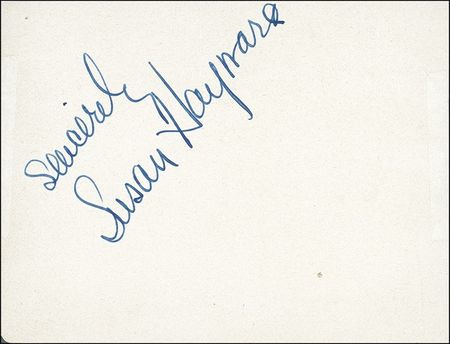 Sincerely
Susan Hayward